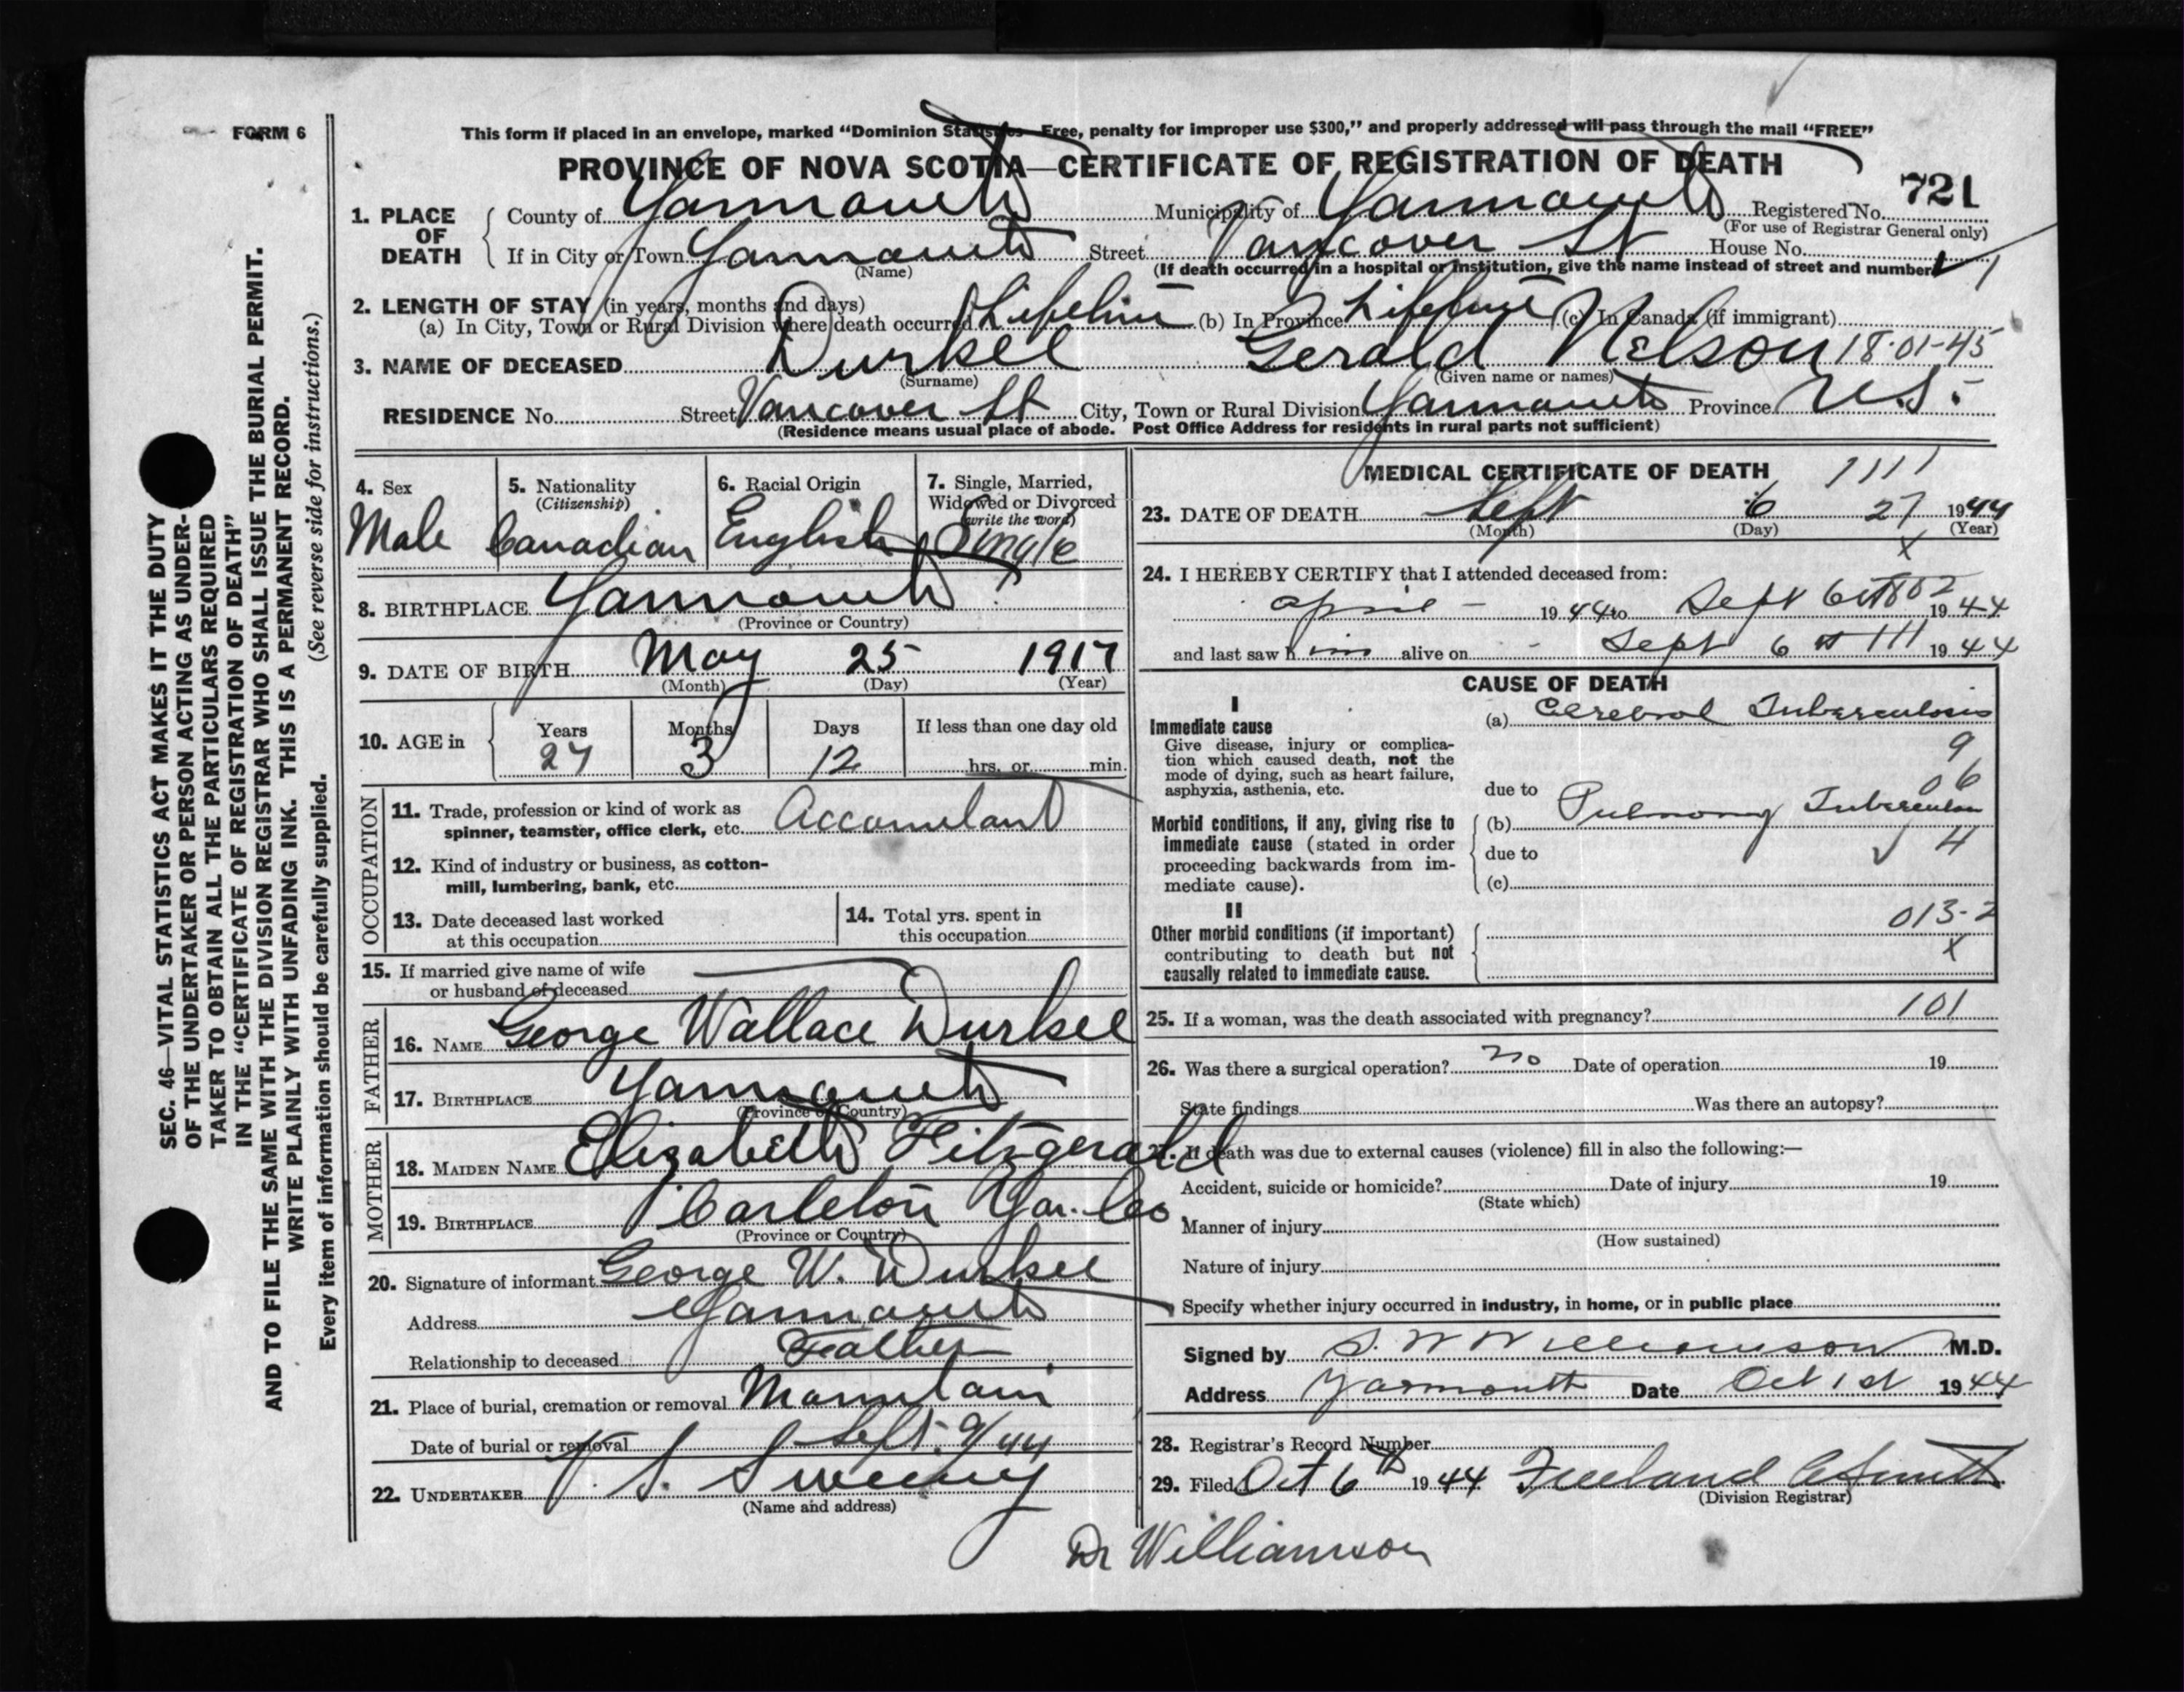 FORM 6
This form if placed in an envelope, marked "Dominion Statistics—Free, penalty for improper use $300," and properly addressed will pass through the mail "FREE"
PROVINCE OF NOVA SCOTIA—CERTIFICATE OF REGISTRATION OF DEATH
721
1. PLACE OF DEATH County of Yarmouth Municipality of Yarmouth Registered No.
(For use of Registrar General only)
If in City or Town Yarmouth Street Vancover St House No.
(Name) (If death occurred in a hospital or institution, give the name instead of street and number)
2. LENGTH OF STAY (in years, months and days)
(a) In City, Town or Rural Division where death occurred Lifetime (b) In Province Lifetime (c) In Canada (if immigrant)
3. NAME OF DECEASED Durkee Gerald Nelson 18-01-45
(Surname) (Given name or names)
RESIDENCE No. Street Vancover St City, Town or Rural Division Yarmouth Province N.S.
(Residence means usual place of abode. Post Office Address for residents in rural parts not sufficient)
SEC. 46—VITAL STATISTICS ACT MAKES IT THE DUTY
OF THE UNDERTAKER OR PERSON ACTING AS UNDER-
TAKER TO OBTAIN ALL THE PARTICULARS REQUIRED
IN THE "CERTIFICATE OF REGISTRATION OF DEATH"
AND TO FILE THE SAME WITH THE DIVISION REGISTRAR WHO SHALL ISSUE THE BURIAL PERMIT.
WRITE PLAINLY WITH UNFADING INK. THIS IS A PERMANENT RECORD.
Every item of information should be carefully supplied. (See reverse side for instructions.)
4. Sex 5. Nationality 6. Racial Origin 7. Single, Married,
(Citizenship) Widowed or Divorced
(write the word)
Male Canadian English Single
8. BIRTHPLACE Yarmouth
(Province or Country)
9. DATE OF BIRTH May 25 1917
(Month) (Day) (Year)
10. AGE in Years Months Days If less than one day old
27 3 12 hrs. or min.
OCCUPATION
11. Trade, profession or kind of work as
spinner, teamster, office clerk, etc. Accountant
12. Kind of industry or business, as cotton-
mill, lumbering, bank, etc.
13. Date deceased last worked
at this occupation
14. Total yrs. spent in
this occupation
15. If married give name of wife
or husband of deceased
FATHER
16. NAME George Wallace Durkee
17. BIRTHPLACE Yarmouth
(Province or Country)
MOTHER
18. MAIDEN NAME Elizabeth Fitzgerald
19. BIRTHPLACE Carleton Yar. Co
(Province or Country)
20. Signature of informant George W. Durkee
Address Yarmouth
Relationship to deceased Father
21. Place of burial, cremation or removal Mountain
Date of burial or removal Sept. 9/44
22. UNDERTAKER V. S. Sweeny
(Name and address)
MEDICAL CERTIFICATE OF DEATH 1111
23. DATE OF DEATH Sept 6 27 1944
(Month) (Day) (Year)
X
24. I HEREBY CERTIFY that I attended deceased from:
April - 1944 to Sept 6th 1944
and last saw him alive on Sept 6th 111 1944
CAUSE OF DEATH
I
Immediate cause (a) Cerebral Tuberculosis
Give disease, injury or complica-
tion which caused death, not the
mode of dying, such as heart failure,
asphyxia, asthenia, etc.
9
06
due to
Morbid conditions, if any, giving rise to (b) Pulmonary Tuberculosis
immediate cause (stated in order due to
proceeding backwards from im-
mediate cause). (c)
4
II
Other morbid conditions (if important)
contributing to death but not
causally related to immediate cause.
013-2
X
25. If a woman, was the death associated with pregnancy? 101
26. Was there a surgical operation? no Date of operation 19
State findings Was there an autopsy?
27. If death was due to external causes (violence) fill in also the following:—
Accident, suicide or homicide? Date of injury 19
(State which)
Manner of injury
(How sustained)
Nature of injury
Specify whether injury occurred in industry, in home, or in public place
Signed by S. W Williamson M.D.
Address Yarmouth Date Oct 1st 1944
28. Registrar's Record Number
29. Filed Oct 6th 1944 Freeland A Smith
(Division Registrar)
Dr Williamson